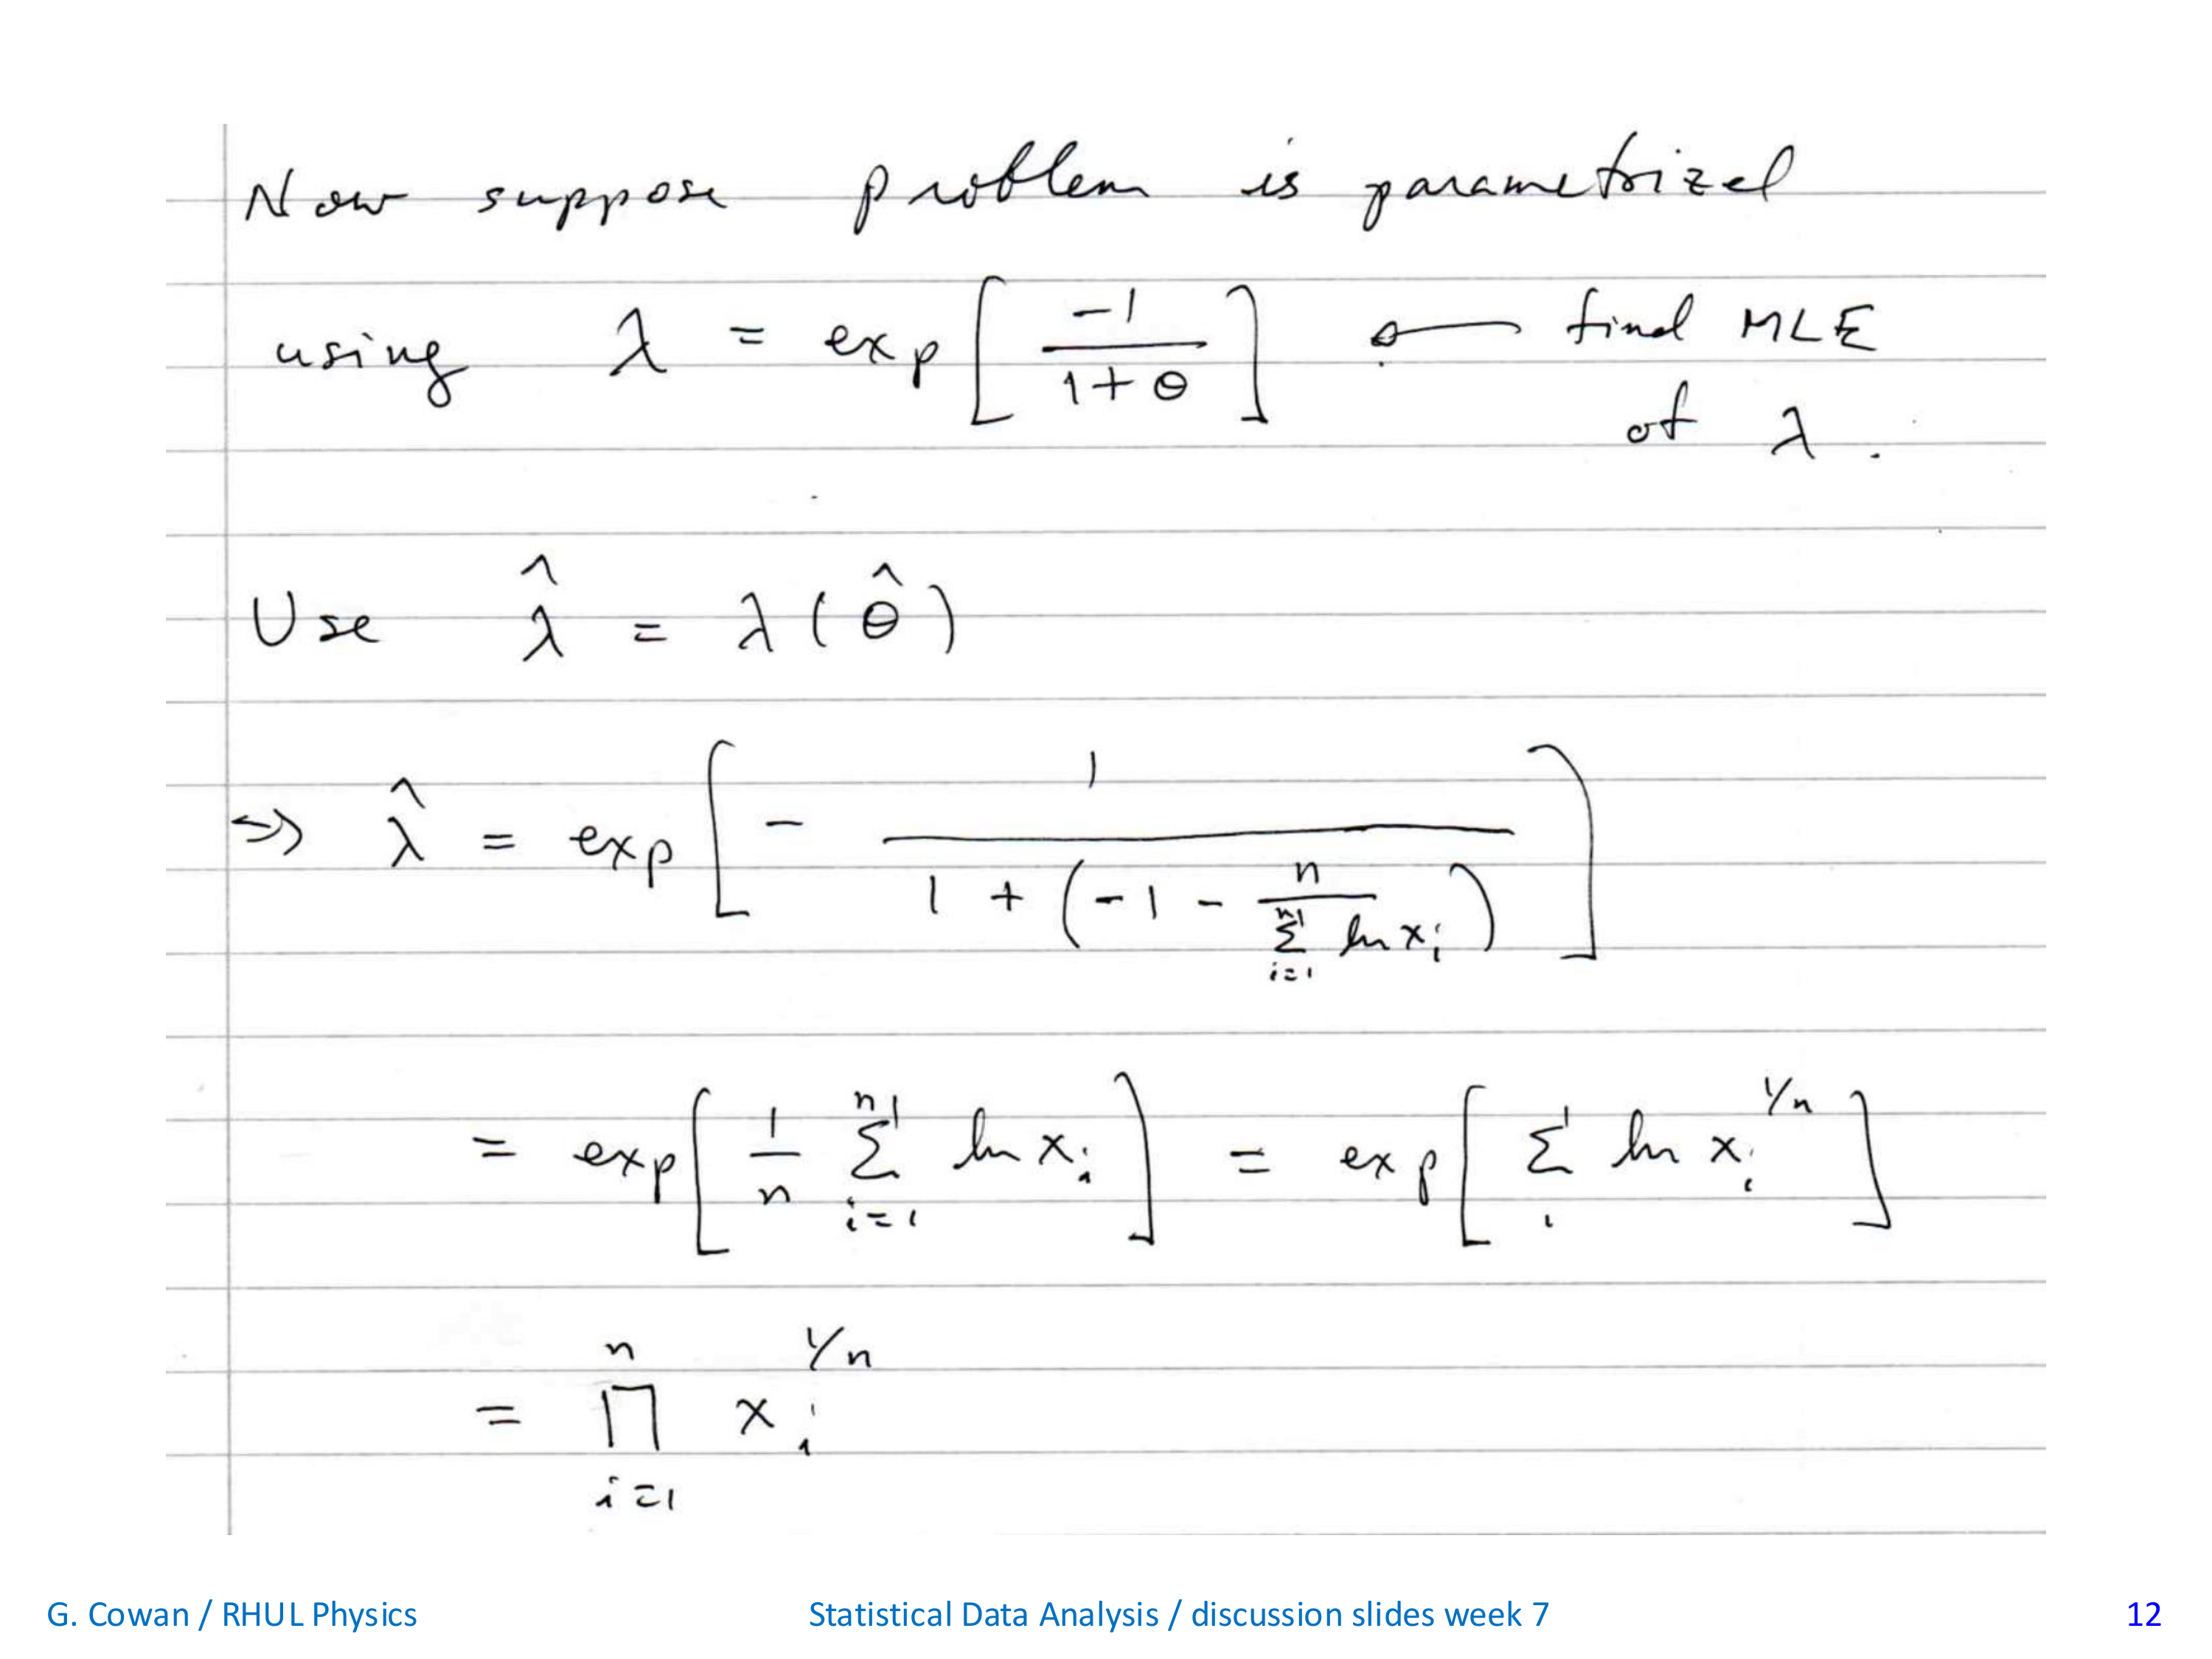 Now suppose problem is parametrized
using λ = exp[ -1 / (1+θ) ] ← find MLE
of λ.
Use λ̂ = λ(θ̂)
⇒ λ̂ = exp[ - 1 / (1 + (-1 - n / ∑_{i=1}^{n} ln x_i)) ]
= exp[ 1/n ∑_{i=1}^{n} ln x_i ] = exp[ ∑_i ln x_i^{1/n} ]
= ∏_{i=1}^{n} x_i^{1/n}
G. Cowan / RHUL Physics Statistical Data Analysis / discussion slides week 7 12